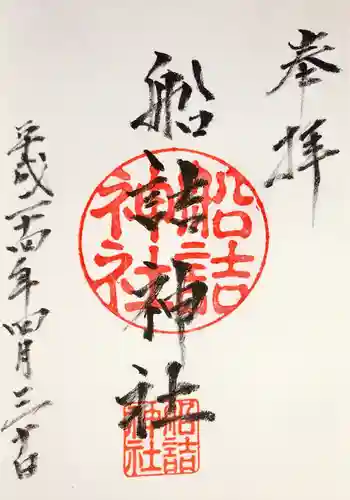 奉拝
船詰神社
船詰神社
船詰神社
平成二十四年四月三十日